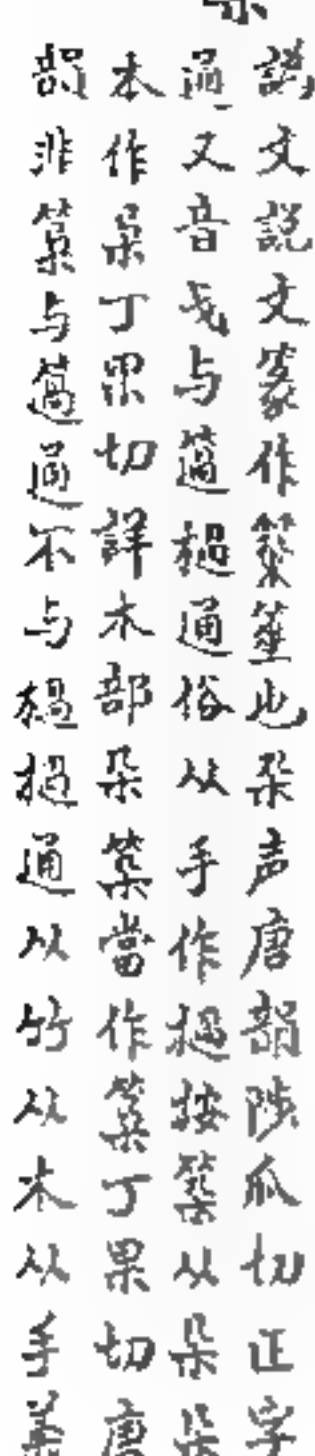 說文説文篆作築箠也朶声唐韻陟瓜切正字
通又音戈与薖檛通俗从手作撾按築从朶朶
本作朵丁果切詳木部朶築當作築丁果切唐
韻非築与薖過不与檛撾通从竹从木从手